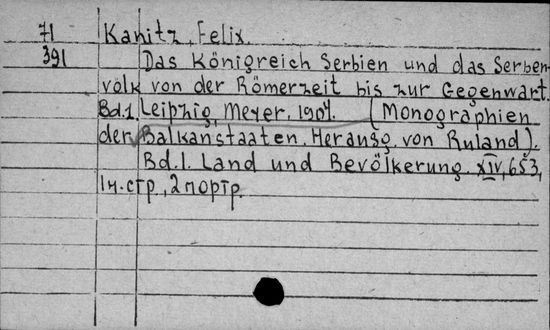 71 Kanitz, Felix.
391 Das Königreich Serbien und das Serben-
volk von der Römerzeit bis zur Gegenwart.
Bd.1. Leipzig, Meyer, 1904. (Monographien
der Balkanstaaten. Herausg. von Ruland).
Bd.1. Land und Bevölkerung. XIV, 653,
1ч. стр., 2 портр.